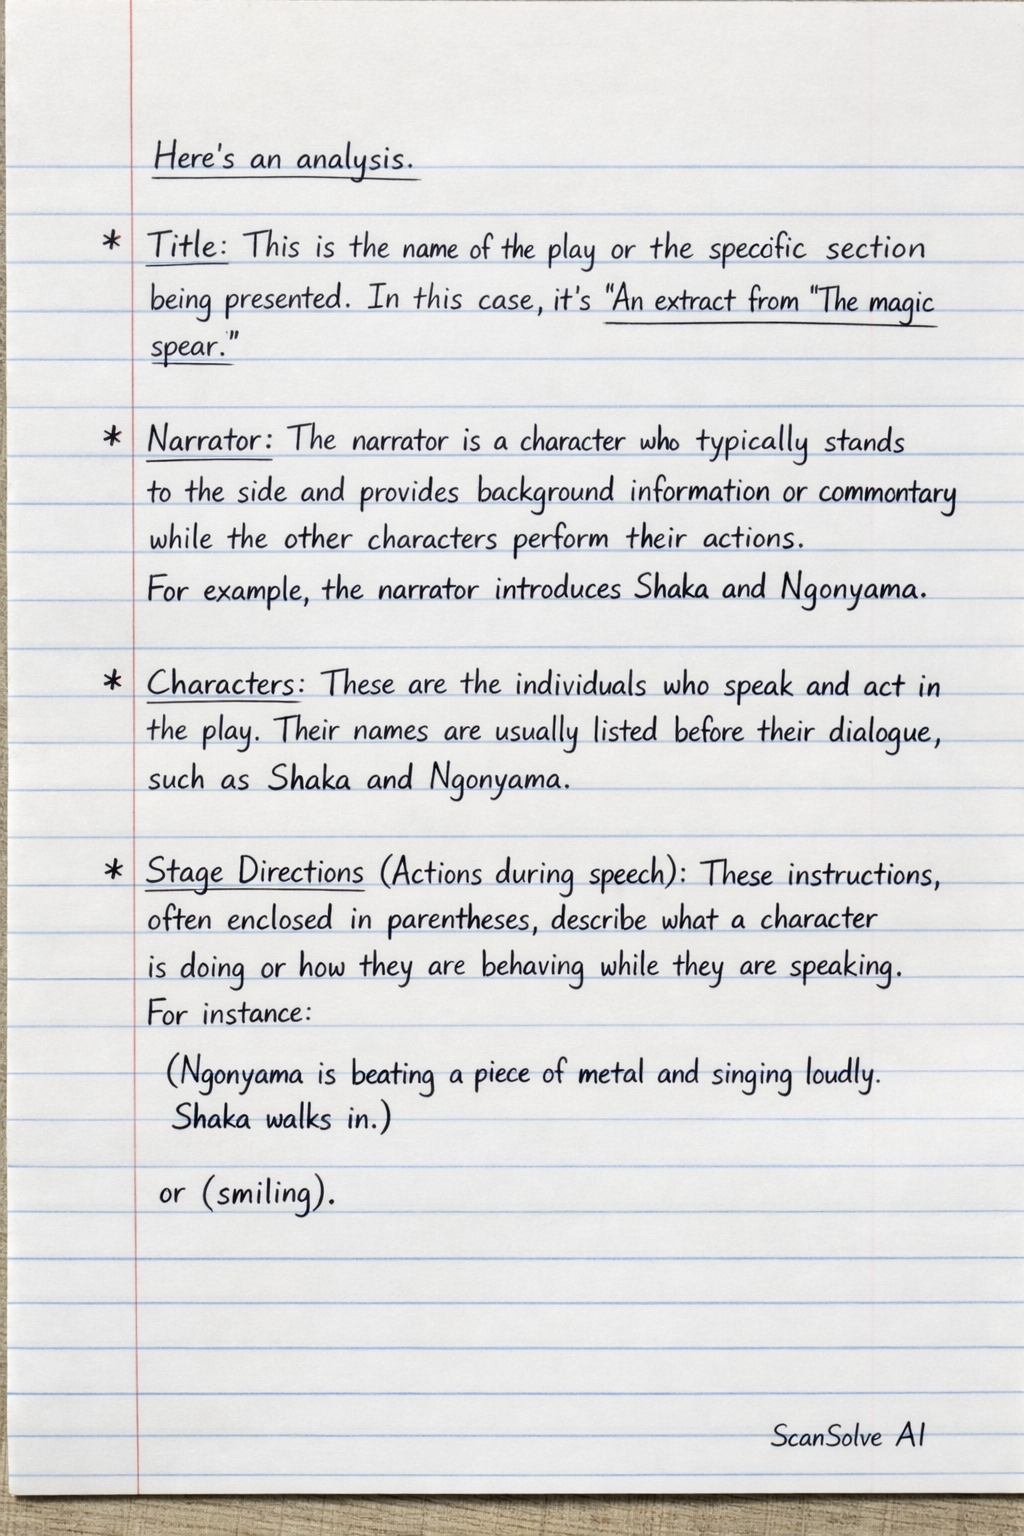 Here's an analysis.
* Title: This is the name of the play or the specific section
being presented. In this case, it's "An extract from "The magic
spear."
* Narrator: The narrator is a character who typically stands
to the side and provides background information or commontary
while the other characters perform their actions.
For example, the narrator introduces Shaka and Ngonyama.
* Characters: These are the individuals who speak and act in
the play. Their names are usually listed before their dialogue,
such as Shaka and Ngonyama.
* Stage Directions (Actions during speech): These instructions,
often enclosed in parentheses, describe what a character
is doing or how they are behaving while they are speaking.
For instance:
(Ngonyama is beating a piece of metal and singing loudly.
Shaka walks in.)
or (smiling).
ScanSolve AI